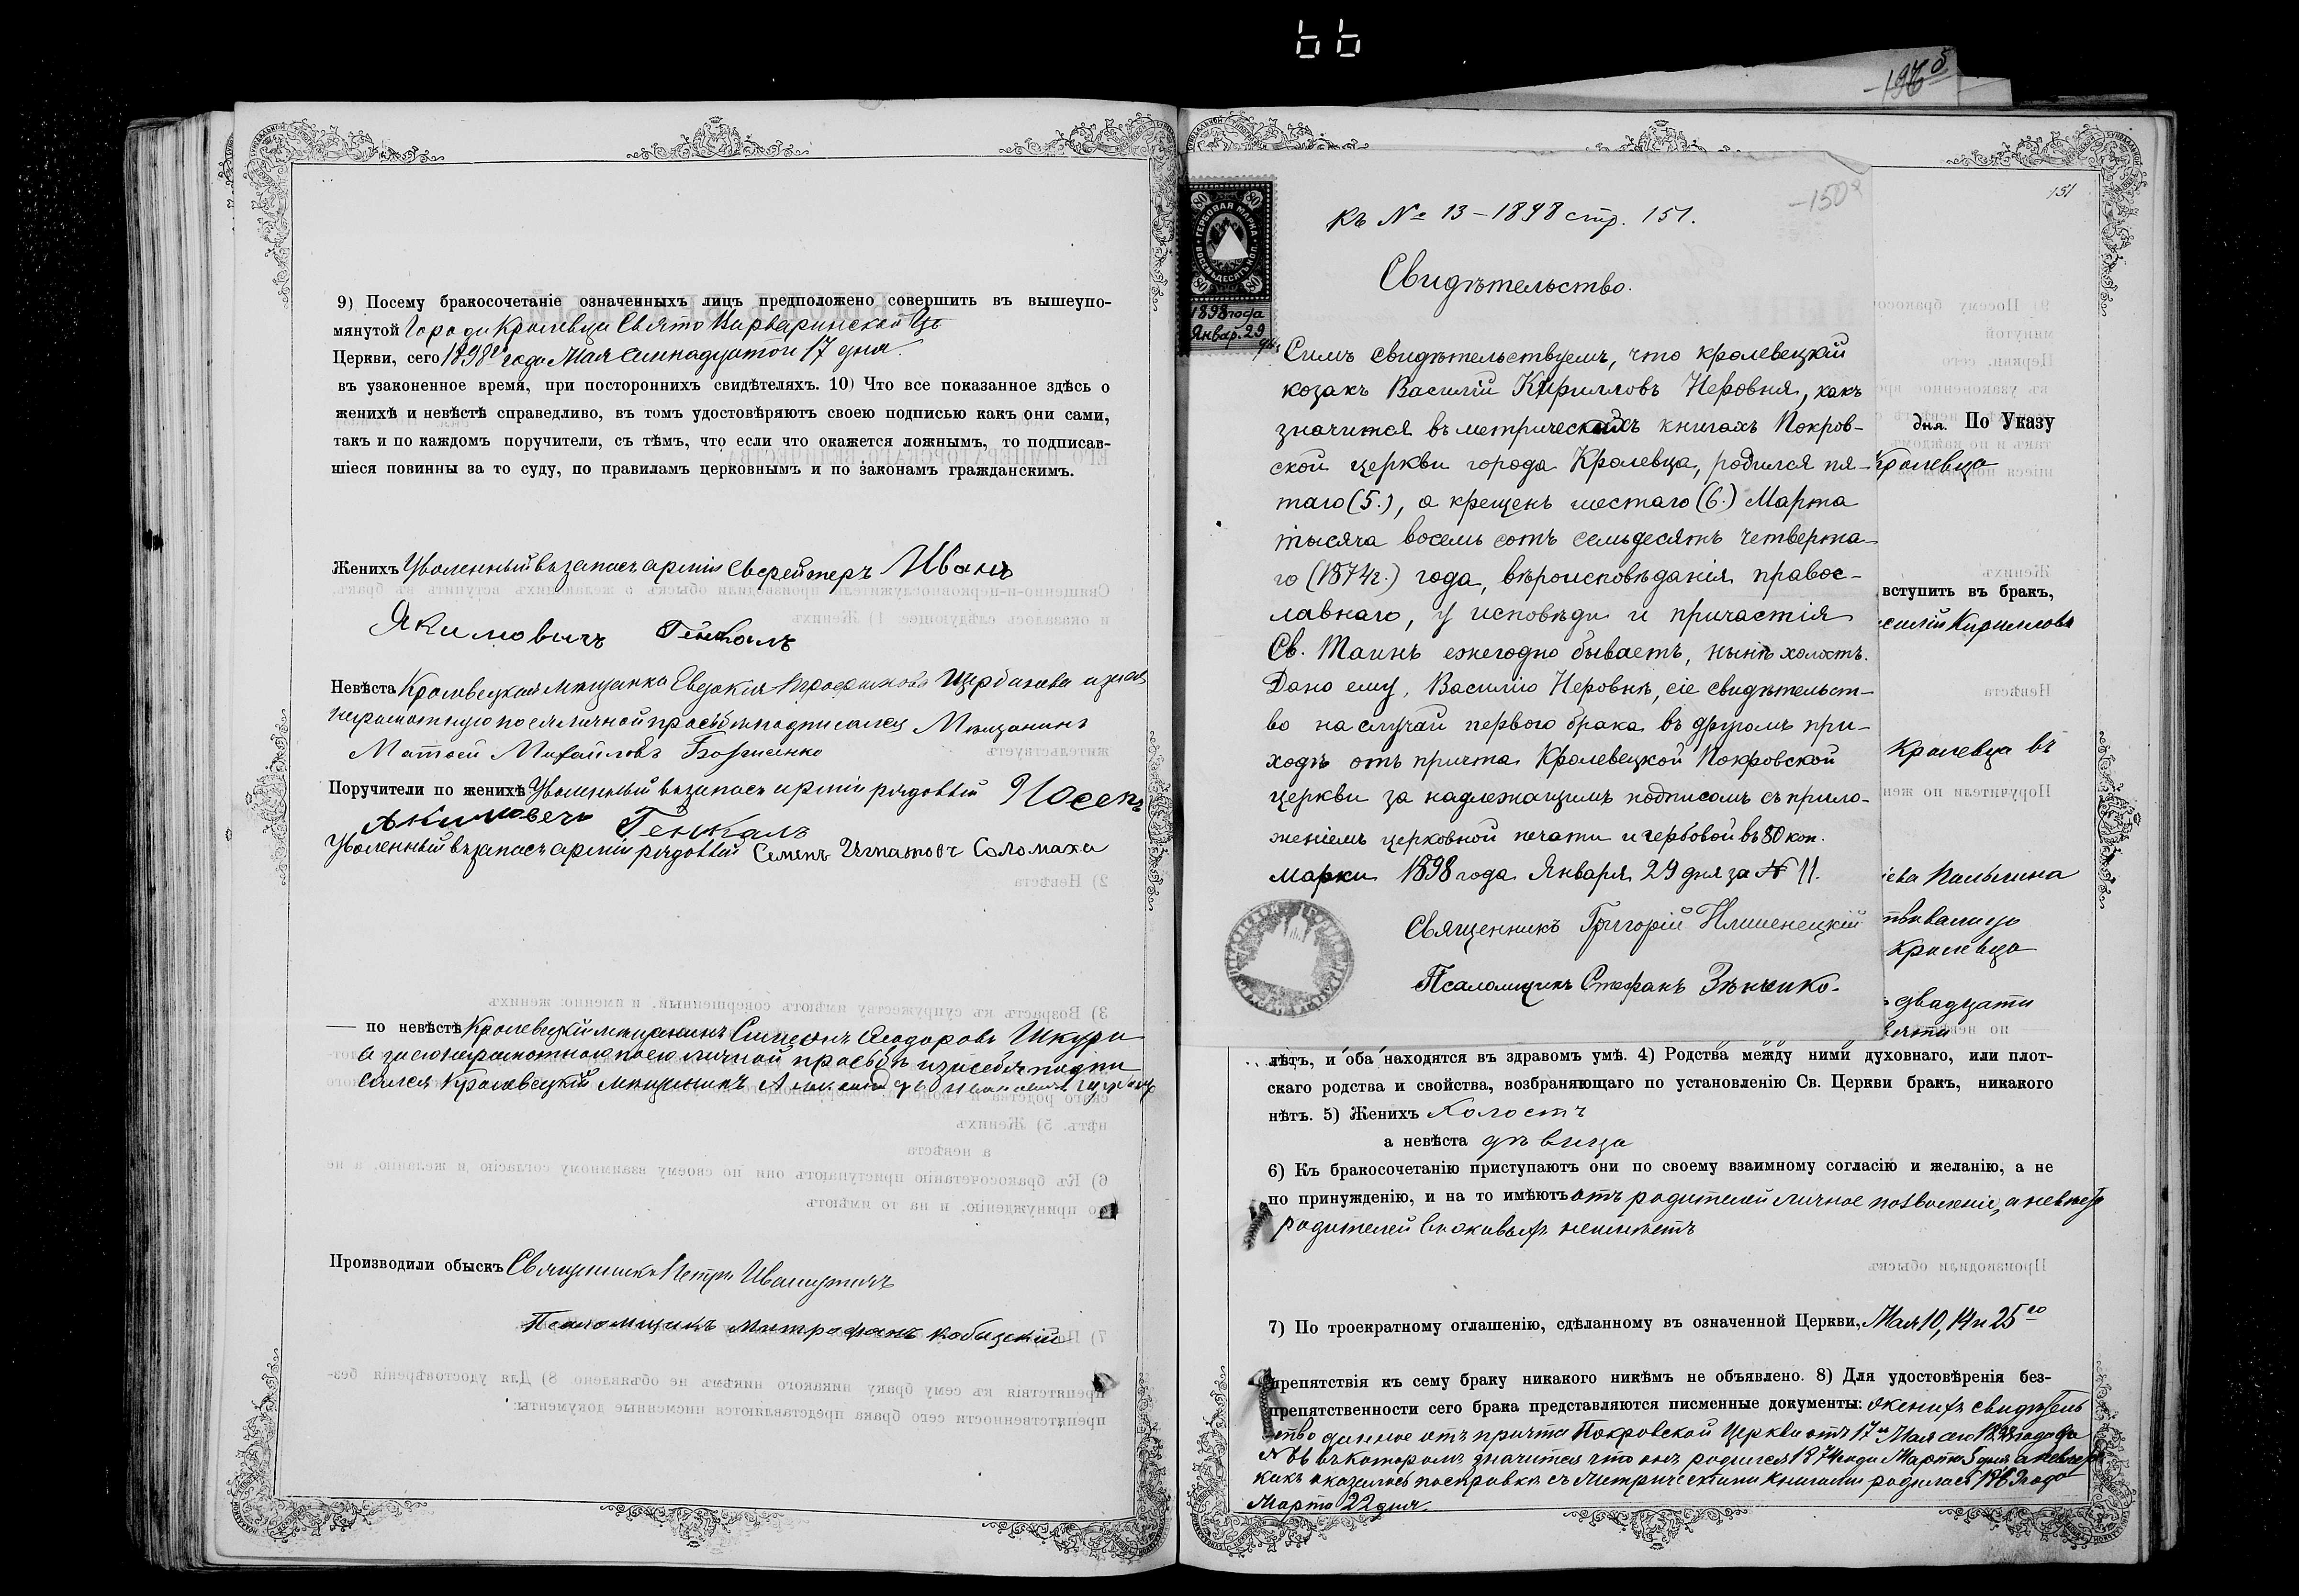 9) Посему бракосочетаніе означенныхъ лицъ предположено совершить въ вышеупо-
мянутой Города Кролевца Свято Варваринской Це
Церкви, сего 1898го года Мая Семнадцатого 17 дня.
въ узаконенное время, при постороннихъ свидѣтеляхъ. 10) Что все показанное здѣсь о
женихѣ и невѣстѣ справедливо, въ томъ удостовѣряютъ своею подписью какъ они сами,
такъ и по каждомъ поручители, съ тѣмъ, что если что окажется ложнымъ, то подписав-
шіеся повинны за то суду, по правиламъ церковнымъ и по законамъ гражданскимъ.
Женихъ Уволенный въ запасъ арміи Ефрейторъ Иванъ
Якимовичъ Генкалъ
Невѣста Кролевецкая мѣщанка Евдокія Трофимова Щербакова а за ея
неграмотную по ея личной просьбѣ подписался Мѣщанинъ
Матвей Михайловъ Борисенко
Поручители по женихѣ Уволенный въ запасъ арміи рядовый Иосепъ
Акимовечъ Генкалъ
Уволенный въ запасъ арміи рядовый Семенъ Игнатовъ Соломаха
— по невѣстѣ Кролевецкій мѣщанинъ Симеонъ Ѳеодоровъ Шкура
а за его неграмотного по его личной просьбѣ и за себя подпи
сался Кролевецкій мѣщанинъ
Производили обыскъ Священникъ Петръ
Псаломщикъ Митрофанъ Кобыскій
-150а
151
къ № 13 – 1898 стр. 151.
ГЕРБОВАЯ МАРКА
ВОСЕМЬДЕСЯТЪ КОП.
80 80 80 80
1898 года
Январ. 29
Свидѣтельство.
Симъ свидѣтельствуемъ, что кролевецкій
козакъ Василій Кирилловъ Неровня, какъ
значится въ метрическихъ книгахъ Покров-
ской церкви города Кролевца, родился пя-
таго (5.), а крещенъ шестаго (6.) Марта
тысяча восемь сотъ семьдесятъ четверта-
го (1874г.) года, вѣроисповѣданія правос-
лавнаго, у исповѣди и причастія
Св. Таинъ ежегодно бываетъ, нынѣ холостъ.
Дано ему, Василію Неровнѣ, сіе свидѣтельст-
во на случай перваго брака въ другомъ при-
ходѣ отъ причта Кролевецкой Покровской
церкви за надлежащимъ подписомъ съ прило-
женіемъ церковной печати и гербовой въ 80 коп.
марки 1898 года Января 29 дня за № 11.
Священникъ Григорій
Псаломщикъ Стефанъ Зѣнченко.
дня. По Указу
Кролевца
вступить въ бракъ,
силій Кирилловъ
Кролевца въ
Кролевца
двадцати
лѣтъ, и оба находятся въ здравомъ умѣ. 4) Родства между ними духовнаго, или плот-
скаго родства и свойства, возбраняющаго по установленію Св. Церкви бракъ, никакого
нѣтъ. 5) Женихъ Холостъ
а невѣста дѣвица
6) Къ бракосочетанію приступаютъ они по своему взаимному согласію и желанію, а не
по принужденію, и на то имѣютъ отъ родителей личное позволеніе, а невѣста
родителей въ живыхъ не имѣетъ
7) По троекратному оглашенію, сдѣланному въ означенной Церкви, Мая 10, 14 и 25го
препятствія къ сему браку никакого никѣмъ не объявлено. 8) Для удостовѣренія без-
препятственности сего брака представляются писменные документы: Женихъ свидѣтель
ство данное отъ причта Покровской Церкви отъ 17го Мая сего 1898 года за
въ которомъ значится что онъ родился 1874 года Марта 5 дня а невѣста
какъ оказалось по справкѣ съ Метрическими книгами родилась года
Марта 22 дня.